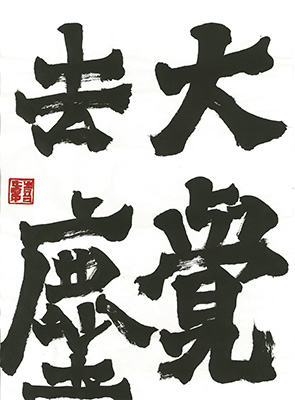 大覺
去塵